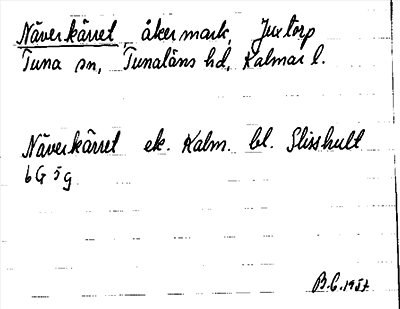 Näverkärret åkermark, Juxtorp
Tuna sn, Tunaläns hd, Kalmar l.
Näverkärret ek. Kalm. bl. Slisshult
6G 5g
B.C. 1957